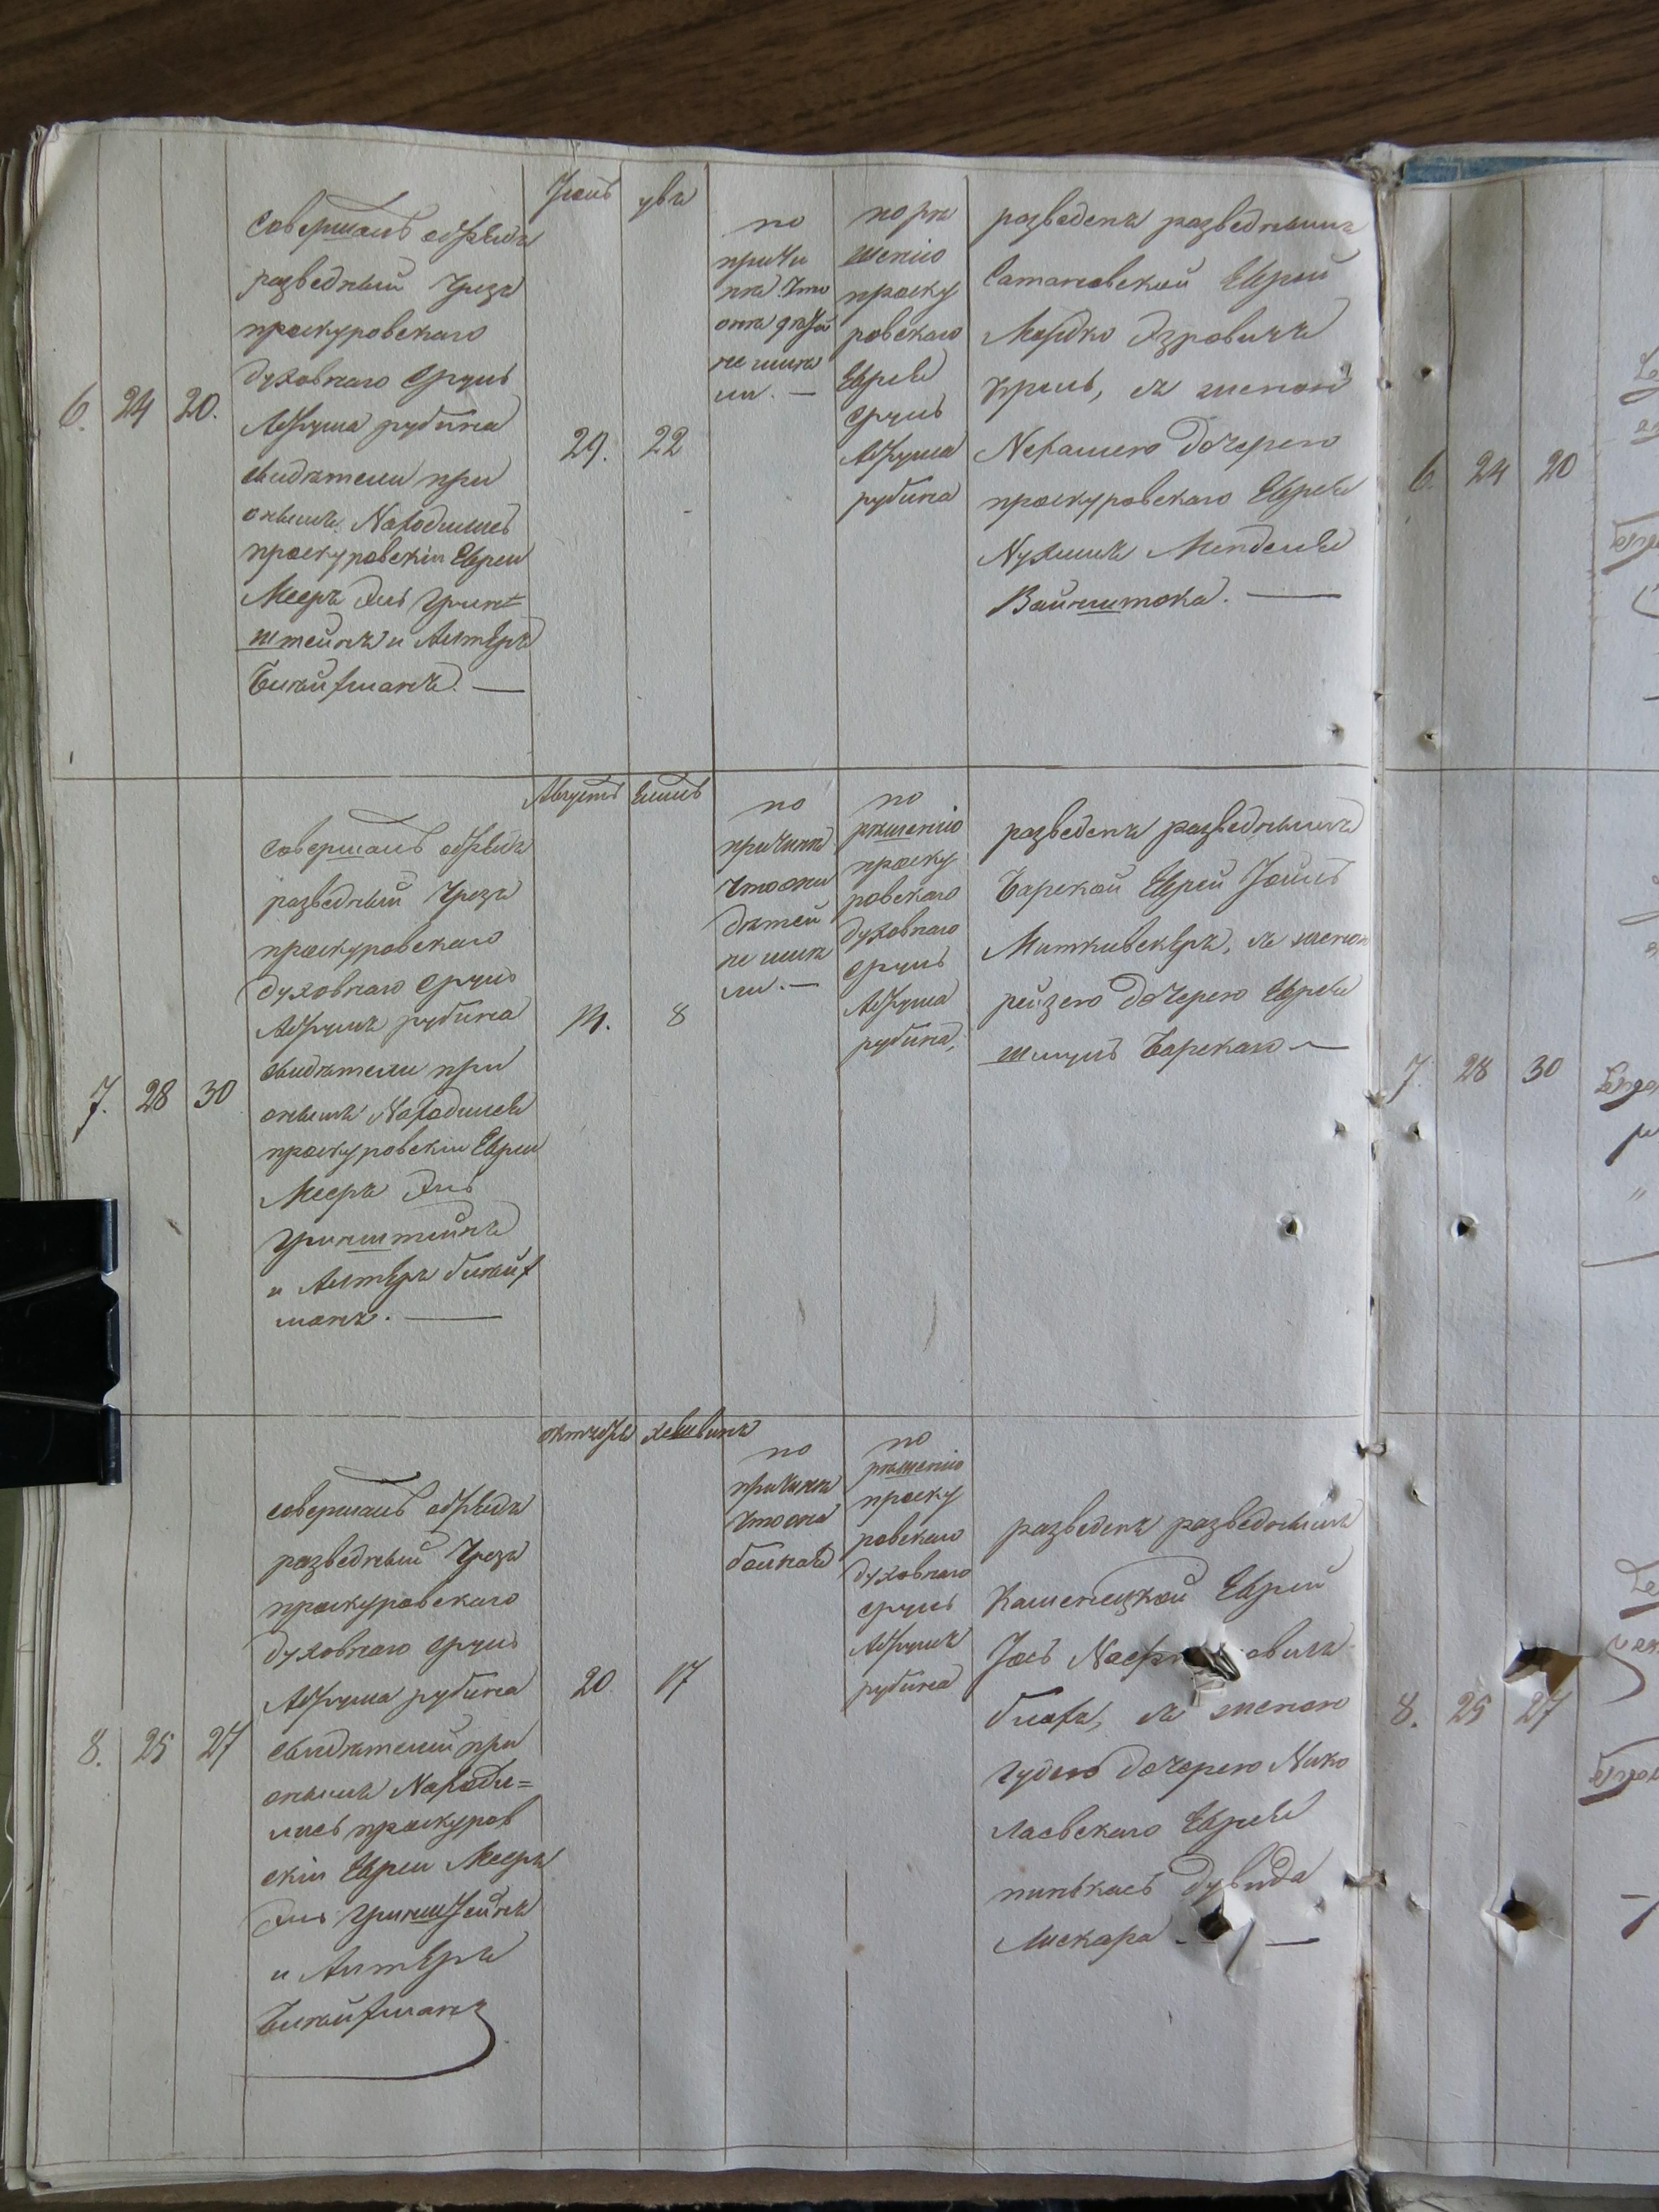 6. 24 20.
Совершалъ обрядъ
разводный чрезъ
проскуровскаго
духовнаго Сруль
Абрума рубина
свидѣтели при
ономъ Находились
проскуровскіи Евреи
Мееръ Эль Грин=
штейнъ и Алтеръ
Блайфманъ. —
Іюль
29.
22
по
причи
нѣ что
они дѣтей
не имѣ
ли. —
по рѣ
шенію
проску
ровскаго
Еврея
Сруль
Абрума
рубина
разведенъ разводнымъ
Сатановской Еврей
Мордко
Крель, съ женою
Нехамею дочерею
проскуровскаго Еврея
Нухима Менделя
Вайнштока. —
7. 28 30
Совершалъ обрядъ
разводный чрезъ
проскуровскаго
духовнаго Сруль
Абрума рубина
свидѣтели при
ономъ Находились
проскуровскіи Евреи
Мееръ Эль
Гринштейнъ
и Алтеръ блайф
манъ. —
Августъ Элиль
14.
8
по
причинѣ
что они
дѣтей
не имѣ
ли. —
по
рѣшенію
проску
ровскаго
духовнаго
Сруль
Абрума
рубина,
разведенъ разводнымъ
Барской Еврей Іойль
Миткивекеръ, съ женою
рейзею дочерею Еврея
Шмуль Барскаго —
8. 25 27
совершалъ обрядъ
разводный чрезъ
проскуровскаго
духовнаго Сруль
Абрума рубина
свидѣтелей при
ономъ Находи=
лись проскуров
скіи Евреи Мееръ
Эль Гринштейнъ
и Алтеръ
Блайфманъ
октябрь хешвинъ
20
17
по
причинѣ
что она
больная
по
рѣшенію
проску
ровскаго
духовнаго
Сруль
Абрума
рубина
разведенъ разводнымъ
Каменецкой Еврей
Іось
блохъ, съ женою
Гудею дочерею Нико
лаевскаго Еврея
пинькась Дувида
Лискара —
6. 24 20
7. 28 30
8. 25 27